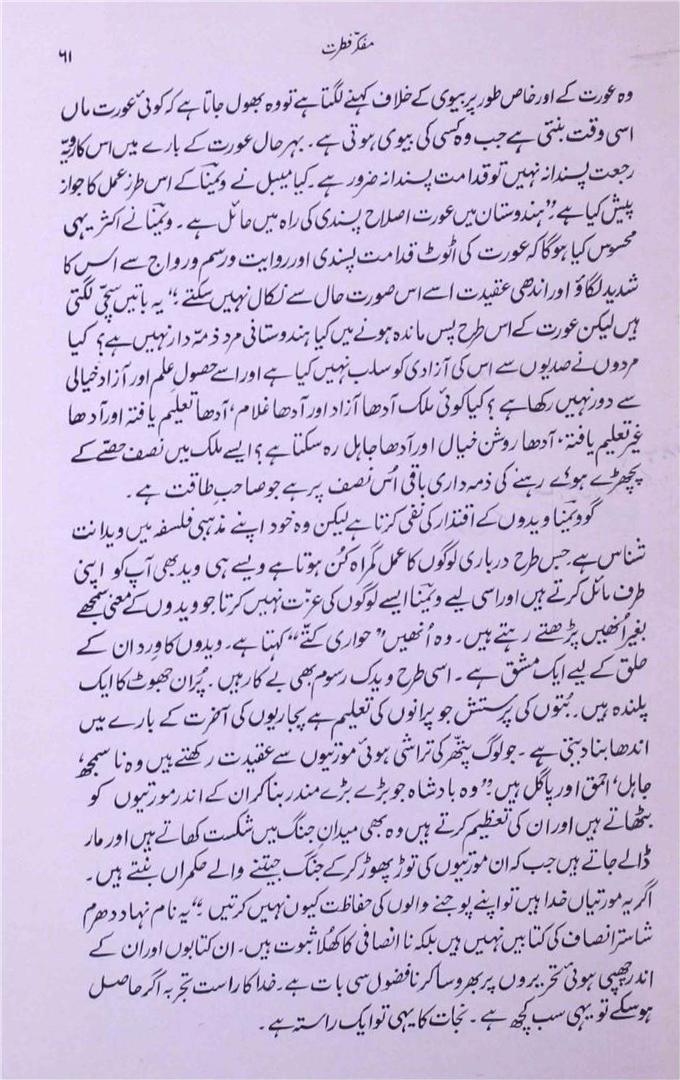 مفکرِ فطرت
۶۱
وہ عورت کے اور خاص طور پر بیوی کے خلاف کہنے لگتا ہے تو وہ بھول جاتا ہے کہ کوئی عورت ماں
اسی وقت بنتی ہے جب وہ کسی کی بیوی ہوتی ہے۔ بہرحال عورت کے بارے میں اس کا رویّہ
رجعت پسندانہ نہیں تو قدامت پسندانہ ضرور ہے۔ کیا میبل نے ویمنا کے اس طرزِ عمل کا جواز
پیش کیا ہے: ”ہندوستان میں عورت اصلاح پسندی کی راہ میں حائل ہے۔ ویمنا نے اکثر یہی
محسوس کیا ہوگا کہ عورت کی اٹوٹ قدامت پسندی اور روایت و رسم و رواج سے اس کا
شدید لگاؤ اور اندھی عقیدت اسے اس صورت حال سے نکال نہیں سکتے۔“ یہ باتیں سچّی لگتی
ہیں لیکن عورت کے اس طرح پس ماندہ ہونے میں کیا ہندوستانی مرد ذمہ دار نہیں ہے؟ کیا
مردوں نے صدیوں سے اس کی آزادی کو سلب نہیں کیا ہے اور اسے حصولِ علم اور آزاد خیالی
سے دور نہیں رکھا ہے؟ کیا کوئی ملک آدھا آزاد اور آدھا غلام، آدھا تعلیم یافتہ اور آدھا
غیر تعلیم یافتہ، آدھا روشن خیال اور آدھا جاہل رہ سکتا ہے؟ ایسے ملک میں نصف حصّے کے
پچھڑے ہوئے رہنے کی ذمہ داری باقی اُس نصف پر ہے جو صاحبِ طاقت ہے۔
گو ویمنا ویدوں کے اقتدار کی نفی کرتا ہے لیکن وہ خود اپنے مذہبی فلسفہ میں ویدانت
شناس ہے۔ جس طرح درباری لوگوں کا عمل گمراہ کُن ہوتا ہے ویسے ہی وید بھی آپ کو اپنی
طرف مائل کرتے ہیں اور اسی لیے ویمنا ایسے لوگوں کی عزّت نہیں کرتا جو ویدوں کے معنی سمجھے
بغیر اُنھیں پڑھتے رہتے ہیں۔ وہ اُنھیں ”حواری کتّے“ کہتا ہے۔ ویدوں کا ورد ان کے
حلق کے لیے ایک مشق ہے۔ اسی طرح ویدک رسوم بھی بے کار ہیں۔ پُران جھوٹ کا ایک
پلندہ ہیں۔ بُتوں کی پرستش جو پرانوں کی تعلیم ہے پجاریوں کی آخرت کے بارے میں
اندھا بنا دیتی ہے۔ جو لوگ پتّھر کی تراشی ہوئی مورتیوں سے عقیدت رکھتے ہیں وہ نا سمجھ،
جاہل، احمق اور پاگل ہیں: ”وہ بادشاہ جو بڑے بڑے مندر بنا کر ان کے اندر مورتیوں کو
بٹھاتے ہیں اور ان کی تعظیم کرتے ہیں وہ بھی میدانِ جنگ میں شکست کھاتے ہیں اور مار
ڈالے جاتے ہیں جب کہ ان مورتیوں کی توڑ پھوڑ کر کے جنگ جیتنے والے حکمراں بنتے ہیں۔
اگر یہ مورتیاں خدا ہیں تو اپنے پوجنے والوں کی حفاظت کیوں نہیں کرتیں۔“ یہ نام نہاد دھرم
شاستر انصاف کی کتابیں نہیں ہیں بلکہ نا انصافی کا کھُلا ثبوت ہیں۔ ان کتابوں اور ان کے
اندر چھپی ہوئی تحریروں پر بھروسا کرنا فضول سی بات ہے۔ خدا کا راست تجربہ اگر حاصل
ہو سکے تو یہی سب کچھ ہے۔ نجات کا یہی تو ایک راستہ ہے۔